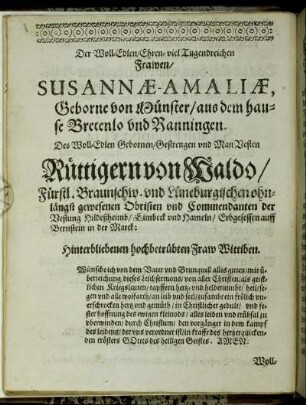 Der Woll-Edlen/Ehren-viel Tugendreichen
Frawen/
SUSANNÆ-AMALIÆ,
Geborne von Münster/aus dem hau-
se Bretenlo vnd Ranningen.
Des Woll-Edlen Gebornen/Gestrengen vnd Man Vesten
Rüttigern von Waldo/
Fürstl. Braunschw. vnd Lüneburgischen ohn-
längst gewesenen Obristen vnd Commendanten der
Vestung Hildesheimb/Eimbeck vnd Hameln/Erbgesessen auff
Bernstein in der Marck:
Hinterbliebenen hochbetrübten Fraw Wittiben.
Wünsche ich von dem Vater vnd Brunquell alles guten: mit ü-
berreichung dieses leichsermons/ von aller Christen/ als geist-
lichen Kriegsleuten/ tapfferm hertz- vnd heldenmuht/ heil/ se-
gen vnd alle wolfarth/ an leib vnd seel/ insonderheit frölich vn-
erschrocken hertz vnd gemüht/ in Christlicher gedult/ vnd fe-
ster hoffnung des ewigen kleinods/ alles leiden vnd trübsal zu
vberwinden/ durch Christum/ den vorgänger in dem kampf
des leidens/ der vns verordnet ist/ in krafft des hertzerquicken-
den trösters Gottes des heiligen Geistes. AMEN.
Woll-